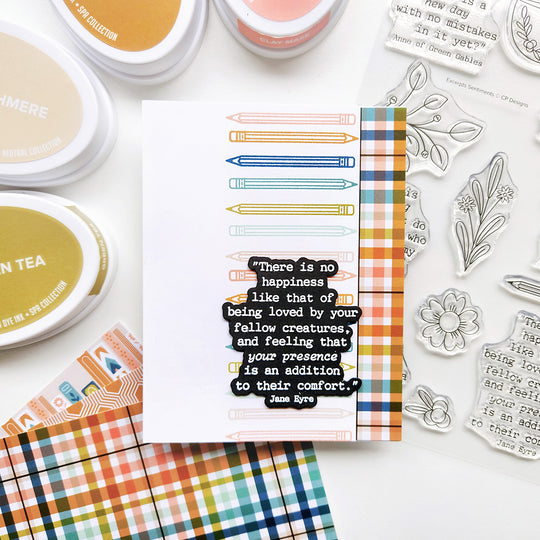 + SPR COLLECTION
CLAY MASK
HMERE
NEUTRAL COLLECTION
N TEA
DYE INK + SPR COLLECTION
"There is no
happiness
like that of
being loved by your
fellow creatures,
and feeling that
your presence
is an addition
to their comfort."
Jane Eyre
day
with no mistakes
in it yet."
Anne of Green Gables
Excerpts Sentiments © CP Designs
do
who
my
"There
happi
like
being lov
fellow cr
and feeli
your pres
is an ad
to their co
Jane Ey